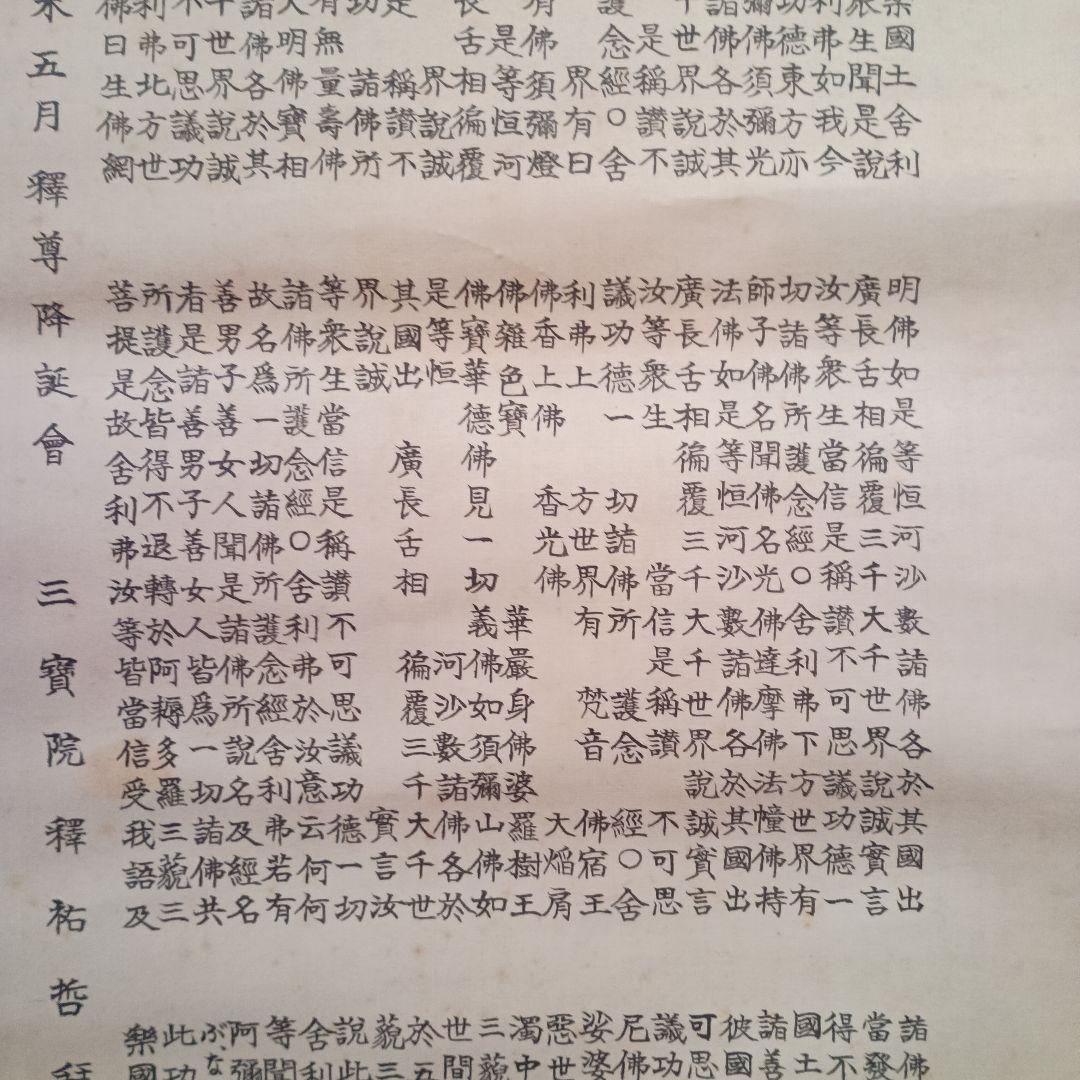 國土舍利
生聞是說
利弗如我今
功德東方亦
彌佛須彌光
諸佛各於其
千世界說誠
是稱讚不
護念經○舍
界有曰
有佛須彌燈
是等恒河
長舌相徧覆
界說誠
是稱讚不
功諸佛所
有無量壽佛
大明佛寶相
諸佛各於其
千世界說誠
不可思議功
利弗北方世
佛曰生佛網
明佛如是等恒河沙數諸佛各於其國出
廣長舌相徧覆三千大千世界說誠實言
汝等衆生當信是稱讚不可思議功德一
切諸佛所護念經○舍利弗下方世界有
師子佛名聞佛名光佛達摩佛法幢佛持
法佛如是等恒河沙數諸佛各於其國出
廣長舌相徧覆三千大千世界說誠實言
汝等衆生當信是稱讚不可思
議功德一切諸佛所護念經○舍
利弗上方世界有梵音佛宿王
佛香上佛香光佛大焔肩
佛雜色寶華嚴身佛婆羅樹王
佛寶華德佛見一切義佛如須彌山佛如
是等恒河沙數諸佛各於
其國出廣長舌相徧覆三千大千世
界說誠實言汝
等衆生當信是稱讚不可思議功德一切
諸佛所護念經○舍利弗於汝意云何何
故名爲一切諸佛所護念經舍利弗若有
善男子善女人聞是諸佛所說名及經名
者是諸善男子善女人皆爲一切諸佛共
所護念皆得不退轉於阿耨多羅三藐三
菩提是故舍利弗汝等皆當信受我語及
諸佛
當發
得不
國土
諸善
彼國
可思
議功
尼佛
娑婆
惡世
濁中
三藐
世間
於五
藐三
說此
舍利
等聞
阿彌
ぶな
此功
樂國
五月釋尊降誕會 三寶院釋祐哲